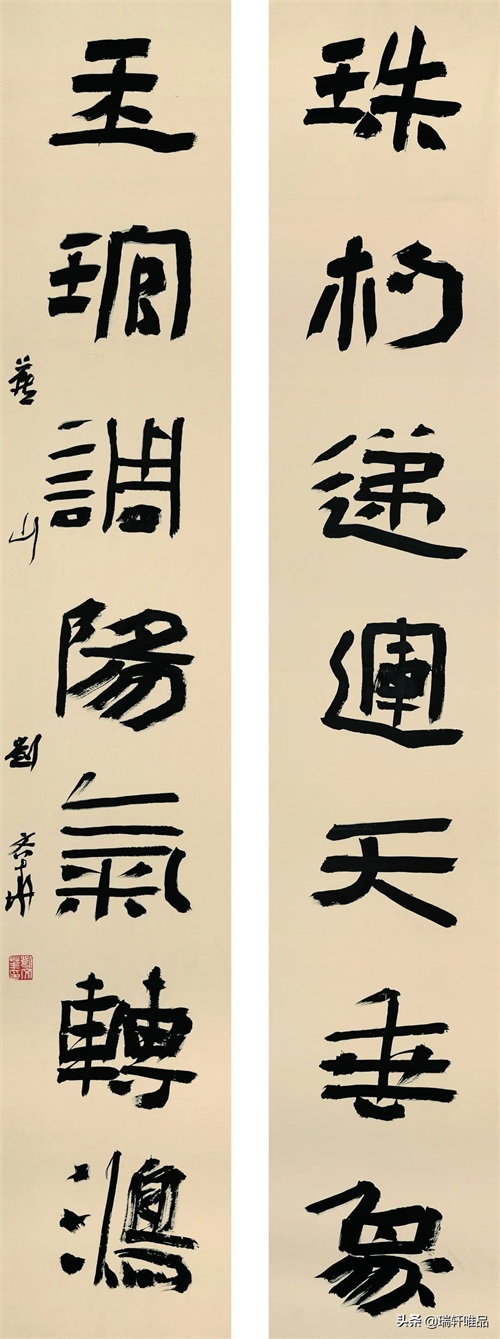 珠杓递運天垂象
玉琯調陽氣轉鴻
燕山劉文華
头条@瑞轩唯品